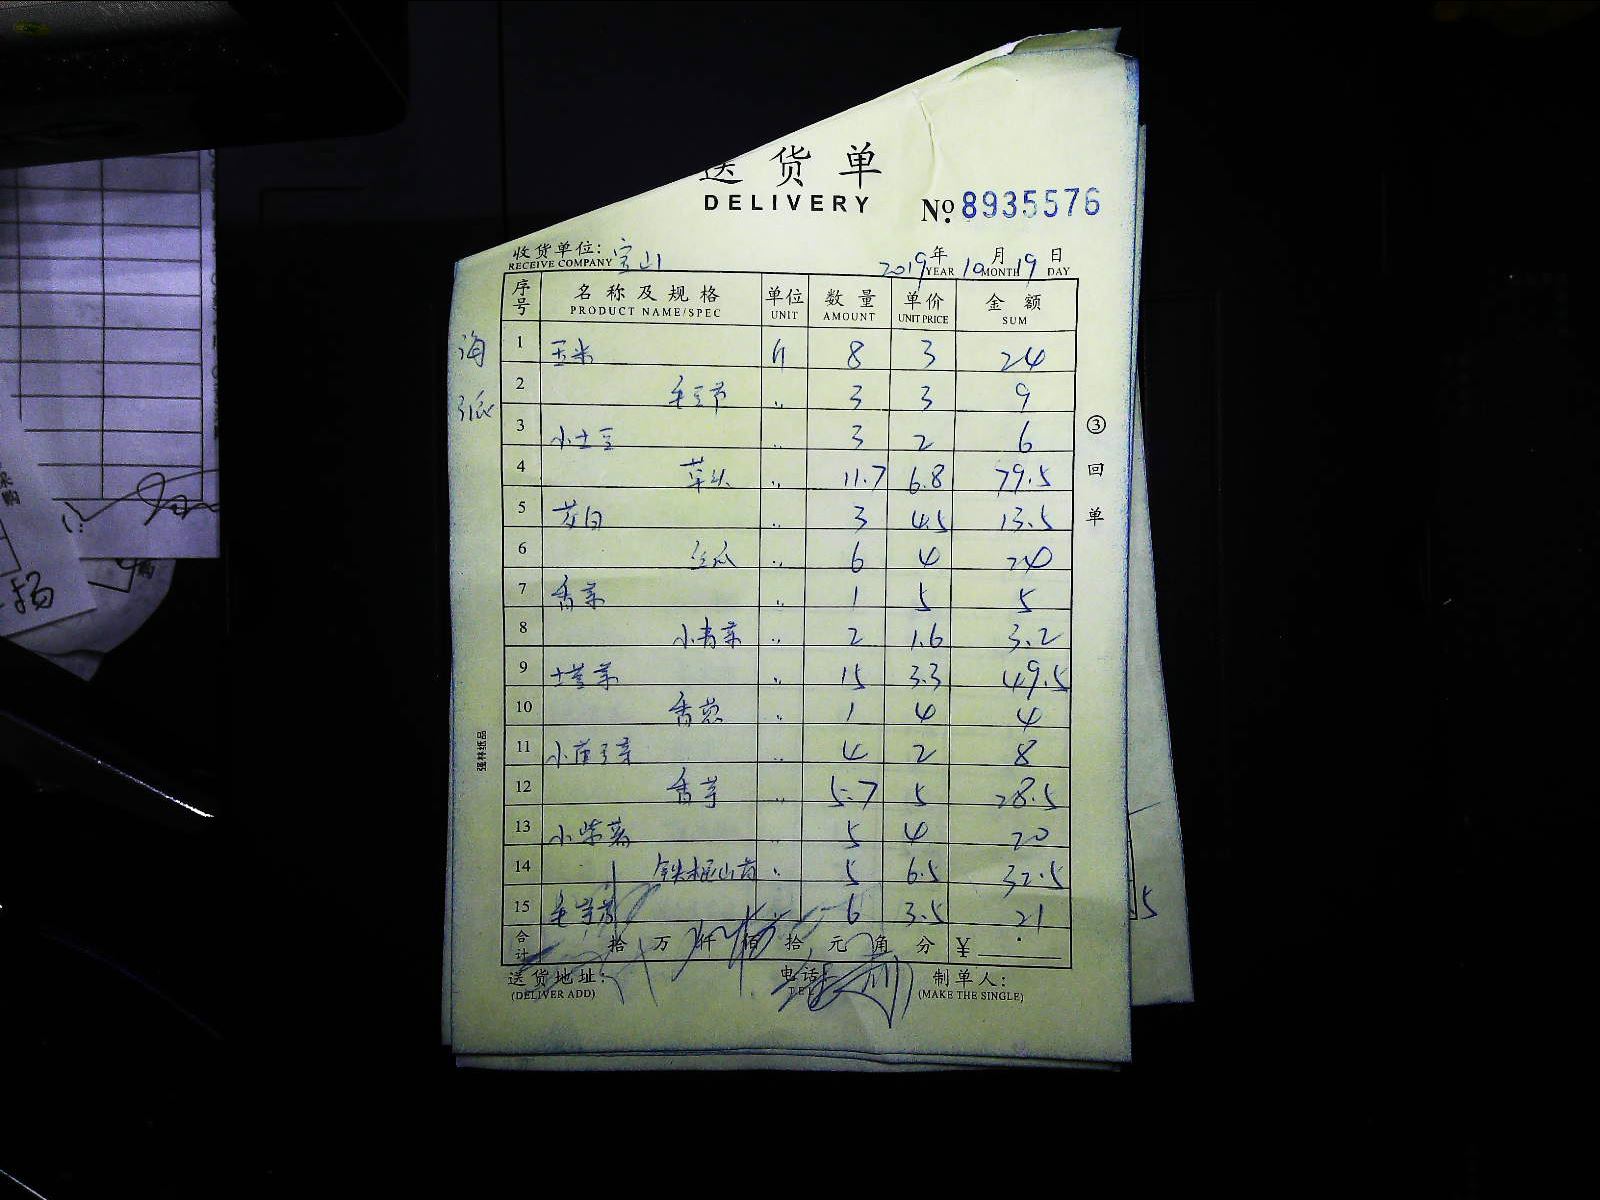 送货单
DELIVERY
№ 8935576
收货单位: 宝山
RECEIVE COMPANY
2019年10月19日
YEAR MONTH DAY
序号 名称及规格 单位 数量 单价 金额
PRODUCT NAME/SPEC UNIT AMOUNT UNIT PRICE SUM
海派
1 玉米 斤 8 3 24
2 毛豆节 〃 3 3 9
3 小土豆 〃 3 2 6
4 草头 〃 11.7 6.8 79.5
5 茭白 〃 3 4.5 13.5
6 丝瓜 〃 6 4 24
7 香菜 〃 1 5 5
8 小青菜 〃 2 1.6 3.2
9 塔菜 〃 15 3.3 49.5
10 香葱 〃 1 4 4
11 小 〃 4 2 8
12 香芋 〃 5.7 5 28.5
13 小紫薯 5 4 20
14 铁棍山药 〃 5 6.5 32.5
15 毛芋艿 〃 6 3.5 21
合计 拾 万 仟 佰 拾 元 角 分 ¥
送货地址: 电话 制单人:
(DELIVER ADD) TEL (MAKE THE SINGLE)
③回单
强林纸品
采购
扬
5